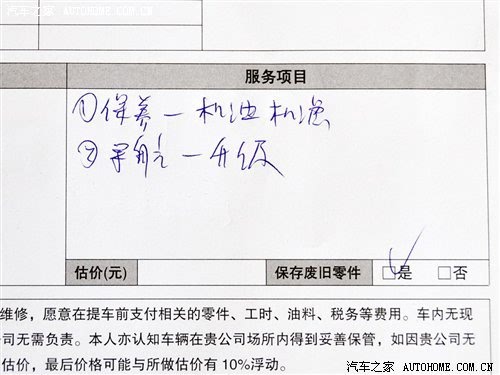 汽车之家 AUTOHOME.COM.CN
服务项目
①保养一机油 机滤
②导航一升级
估价(元) 保存废旧零件 □是 □否
维修，愿意在提车前支付相关的零件、工时、油料、税务等费用。车内无现
公司无需负责。本人亦认知车辆在贵公司场所内得到妥善保管，如因贵公司无
估价，最后价格可能与所做估价有10%浮动。
汽车之家 AUTOHOME.COM.CN